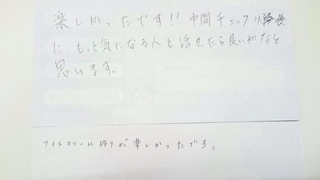 楽しかったです!! 中間チェック以降
に もっと気になる人と話せたら良いかなと
思います。
アイスクリーム作りが楽しかったです。